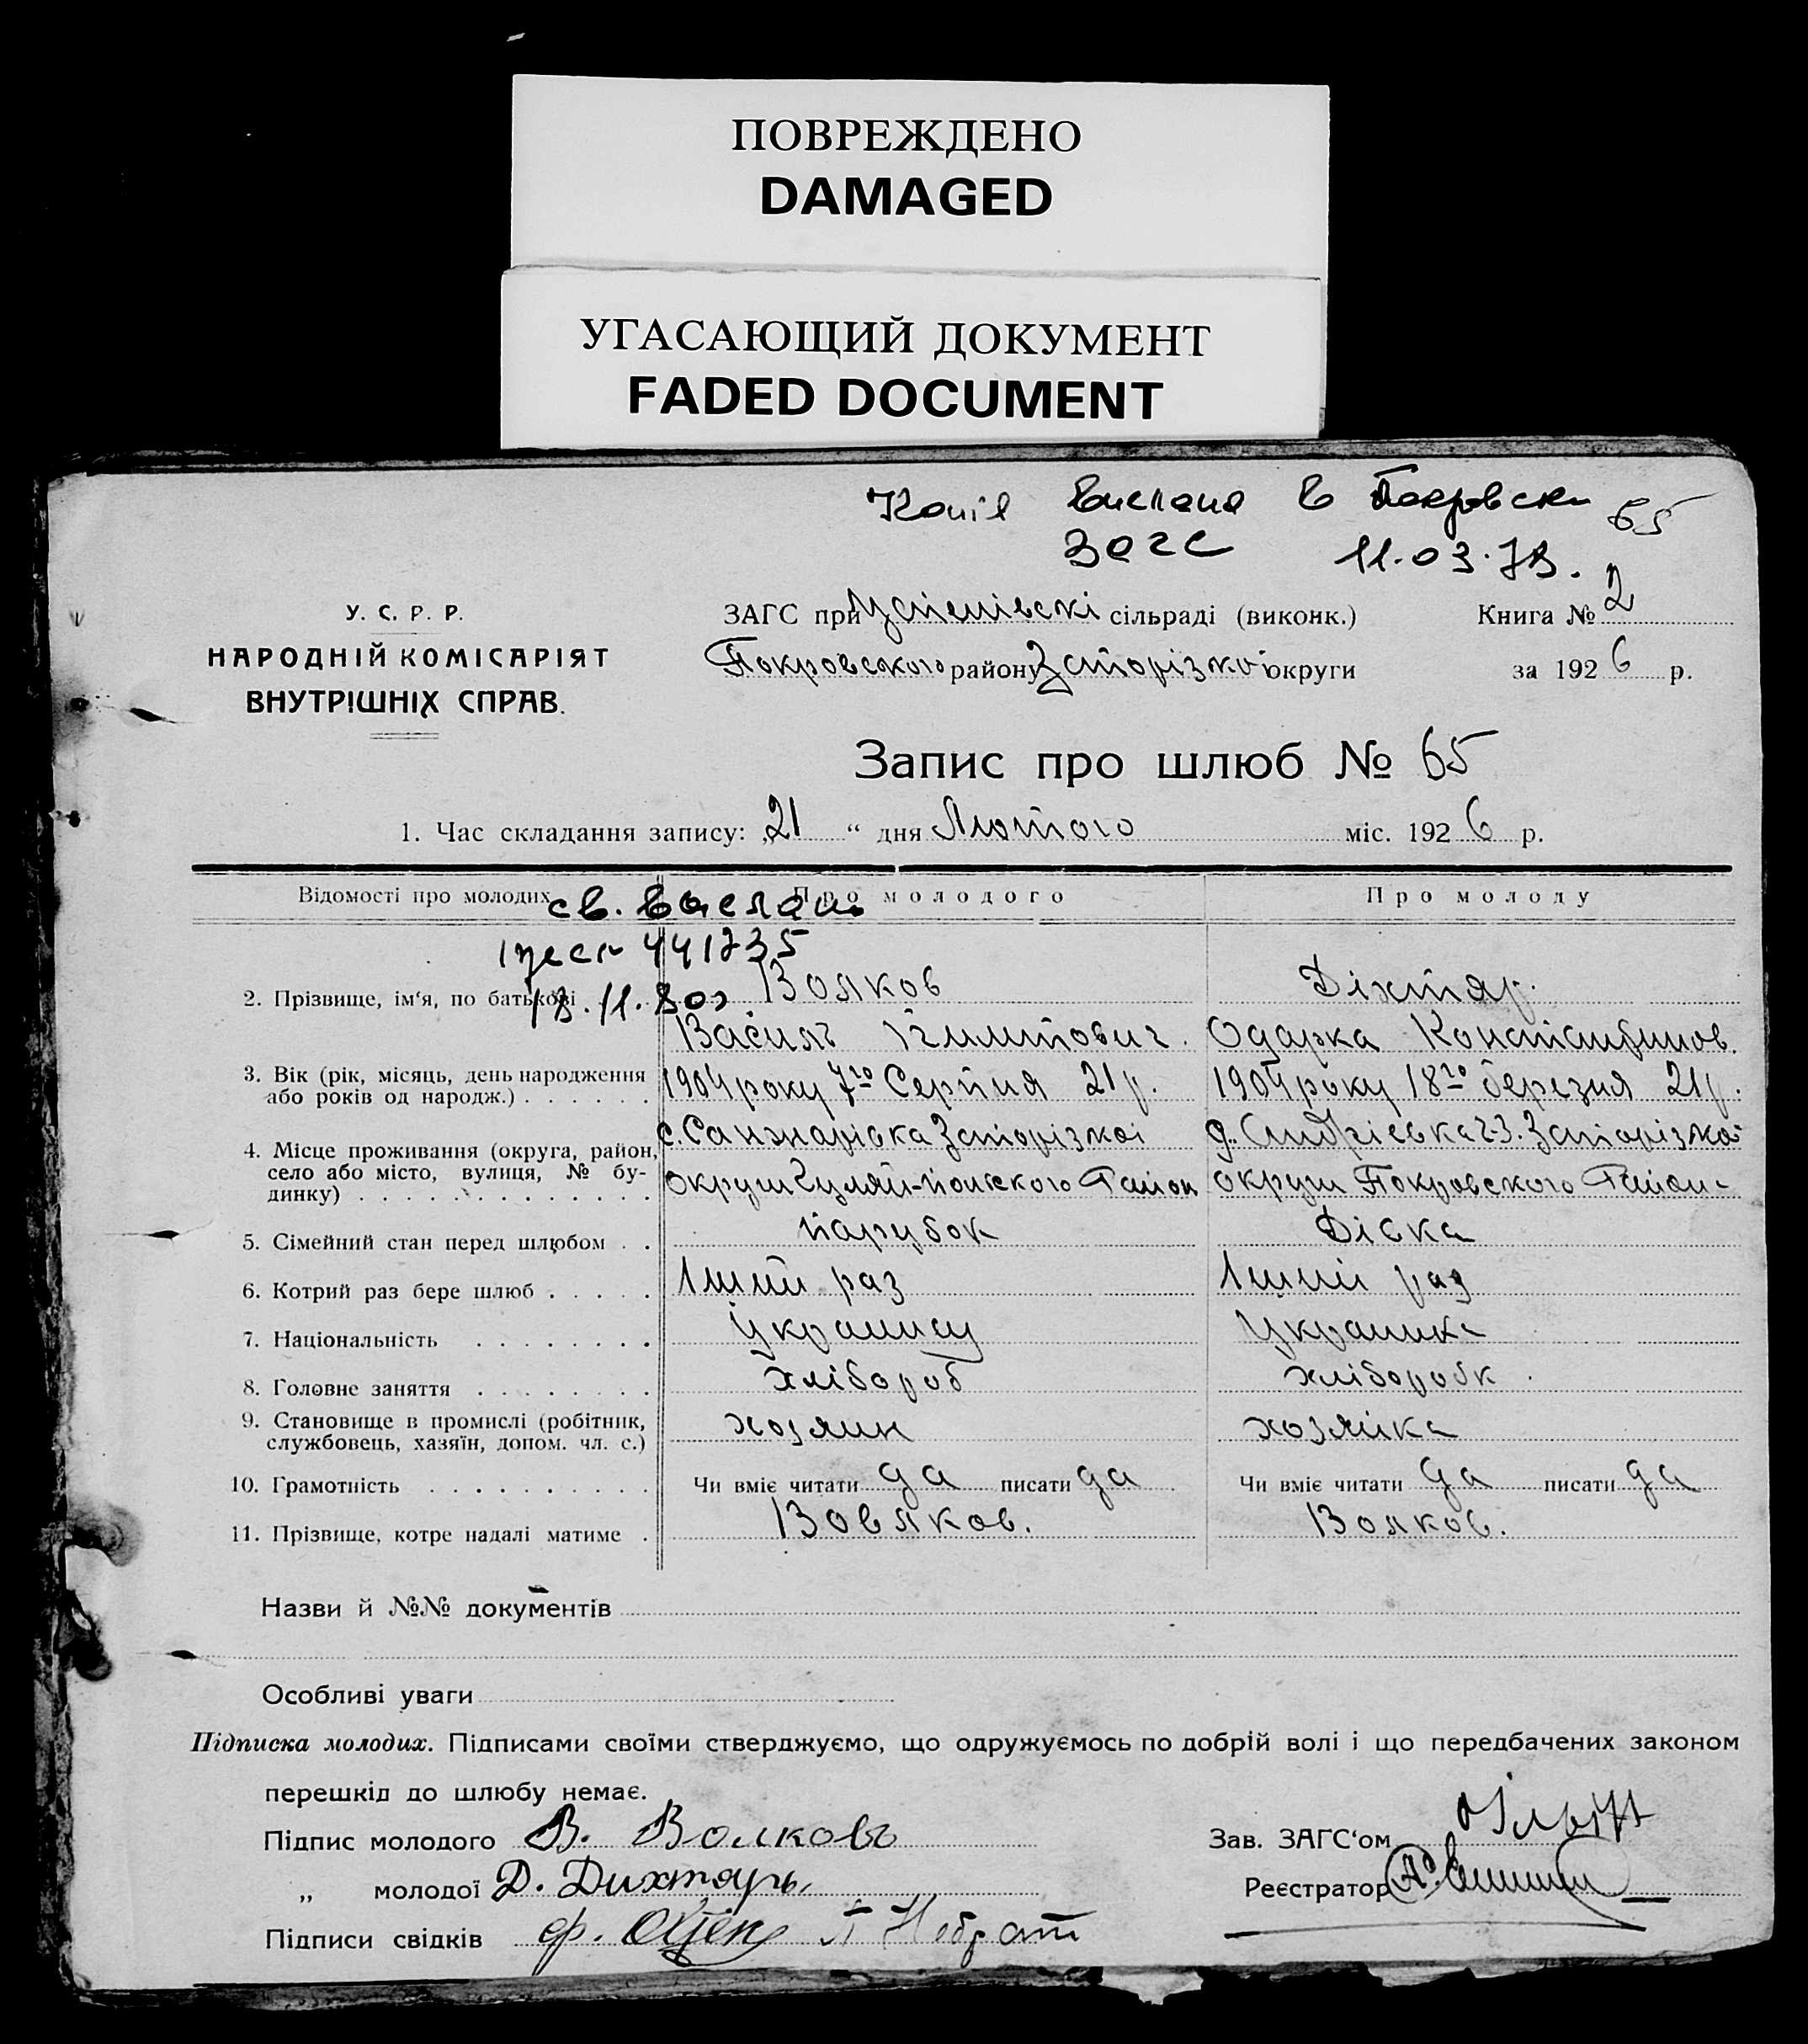 ПОВРЕЖДЕНО
DAMAGED
УГАСАЮЩИЙ ДОКУМЕНТ
FADED DOCUMENT
Копія выслана в Покровск 65
ЗАГС 11.03.73.
У. С. Р. Р.
НАРОДНІЙ КОМІСАРІЯТ
ВНУТРІШНІХ СПРАВ.
ЗАГС при Успенівскі сільраді (виконк.) Книга № 2
Покровського району Запорізкої округи за 1926 р.
Запис про шлюб № 65
1. Час складання запису: „21 “ дня Лютого міс. 1926 р.
Відомості про молодих Про молодого Про молоду
св.
441735
18.11.80
2. Прізвище, ім‘я, по батькові Вояков Діхтяр.
Василь Одарка Константинов.
3. Вік (рік, місяць, день народження або років од народж.) 1904 року 7го Серпня 21 р. 1904 року 18го березня 21 р.
4. Місце проживання (округа, район, село або місто, вулиця, № будинку) с. Санжарівка Запорізкої Запорізкої
округи Гуляй-польского Район округи Покровского Район
5. Сімейний стан перед шлюбом парубок Дівка
6. Котрий раз бере шлюб 1ший раз 1ший раз
7. Національність Українец Украинка
8. Головне заняття хлібороб хліборобк
9. Становище в промислі (робітник, службовець, хазяїн, допом. чл. с.) хозяин хозяйка
10. Грамотність Чи вміє читати да писати да Чи вміє читати да писати да
11. Прізвище, котре надалі матиме Вовяков. Вояков.
Назви й №№ документів
Особливі уваги
Підписка молодих. Підписами своїми стверджуємо, що одружуємось по добрій волі і що передбачених законом
перешкід до шлюбу немає.
Підпис молодого В. Волковъ Зав. ЗАГС‘ом
„ молодої Д. Дихтярь Реєстратор
Підписи свідків